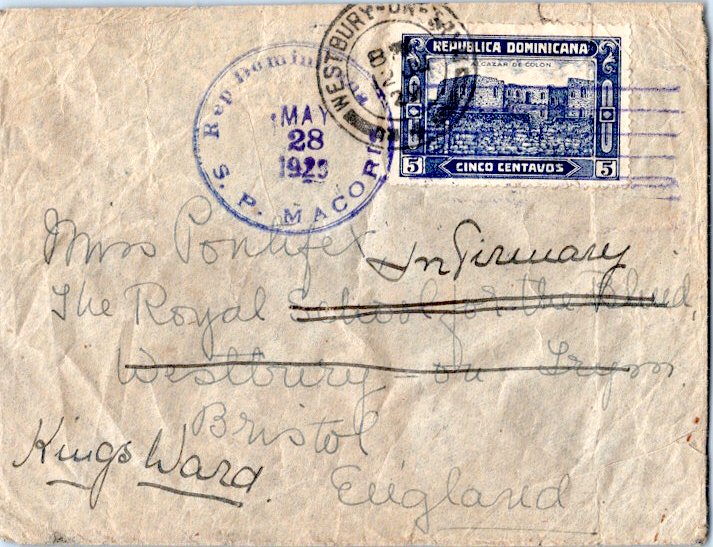 WESTBURY-ON-
REPUBLICA DOMINICANA
ALCAZAR DE COLON
5 CINCO CENTAVOS 5
Rep Domin
MAY
28
S. P. MACORIS
Miss Pontifex
Infirmary
The Royal School for the Blind,
Westbury-on Trym
Bristol
Kings Ward.
England